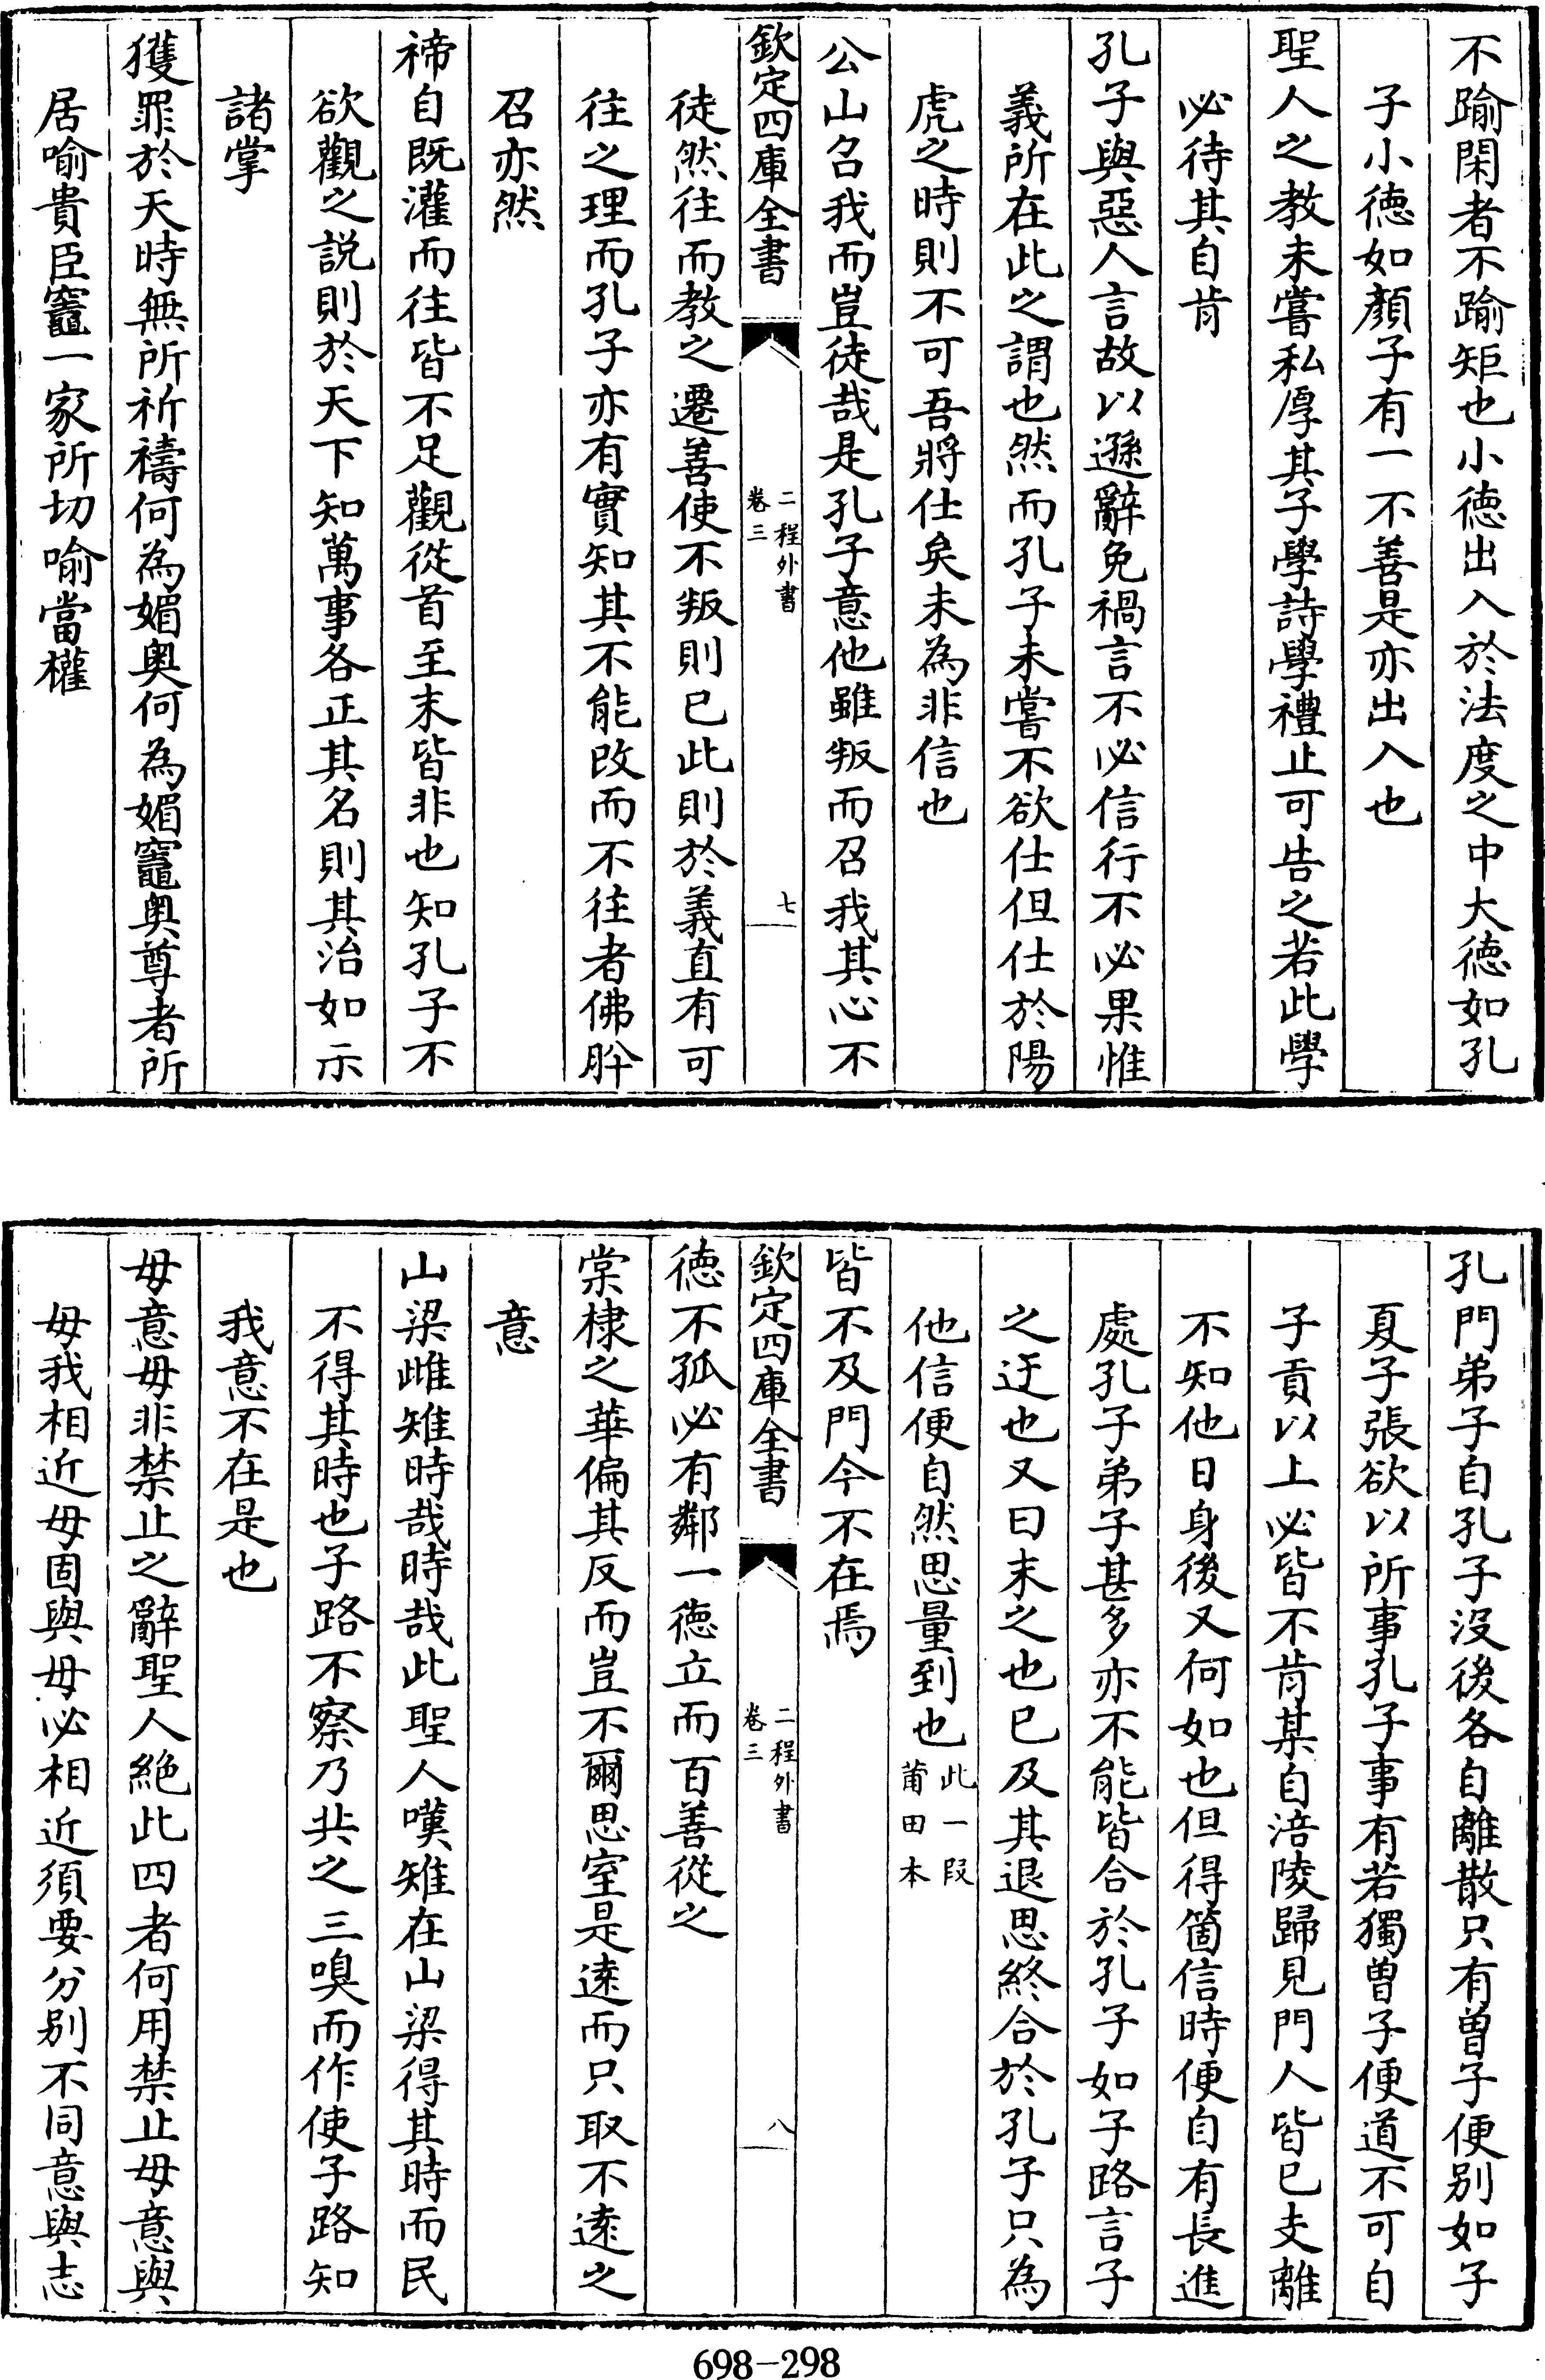 不踰閑者不踰矩也小徳出入於法度之中大徳如孔
子小徳如顔子有一不善是亦出入也
聖人之教未嘗私厚其子學詩學禮止可告之若此學
必待其自肯
孔子與惡人言故以遜辭免禍言不必信行不必果惟
義所在此之謂也然而孔子未嘗不欲仕但仕於陽
虎之時則不可吾將仕矣未為非信也
公山召我而豈徒哉是孔子意他雖叛而召我其心不
欽定四庫全書
二程外書
卷三
七
徒然往而教之遷善使不叛則已此則於義直有可
往之理而孔子亦有實知其不能改而不往者佛肸
召亦然
禘自既灌而往皆不足觀從首至末皆非也知孔子不
欲觀之説則於天下知萬事各正其名則其治如示
諸掌
獲罪於天時無所祈禱何為媚奥何為媚竈奥尊者所
居喻貴臣竈一家所切喻當權
孔門弟子自孔子沒後各自離散只有曽子便别如子
夏子張欲以所事孔子事有若獨曽子便道不可自
子貢以上必皆不肯某自涪陵歸見門人皆已支離
不知他日身後又何如也但得箇信時便自有長進
處孔子弟子甚多亦不能皆合於孔子如子路言子
之迂也又曰末之也已及其退思終合於孔子只為
他信便自然思量到也此一段
莆田本
皆不及門今不在焉
欽定四庫全書
二程外書
卷三
八
徳不孤必有鄰一徳立而百善從之
棠棣之華偏其反而豈不爾思室是逺而只取不逺之
意
山梁雌雉時哉時哉此聖人嘆雉在山梁得其時而民
不得其時也子路不察乃共之三嗅而作使子路知
我意不在是也
毋意毋非禁止之辭聖人絶此四者何用禁止毋意與
毋我相近毋固與毋必相近須要分别不同意與志
698-298